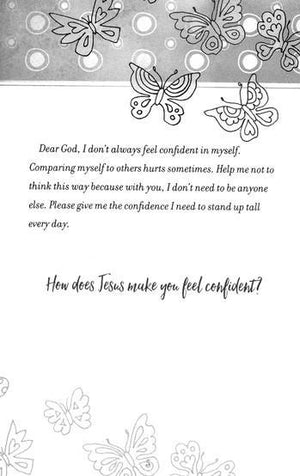 Dear God, I don't always feel confident in myself.
Comparing myself to others hurts sometimes. Help me not to
think this way because with you, I don't need to be anyone
else. Please give me the confidence I need to stand up tall
every day.
How does Jesus make you feel confident?